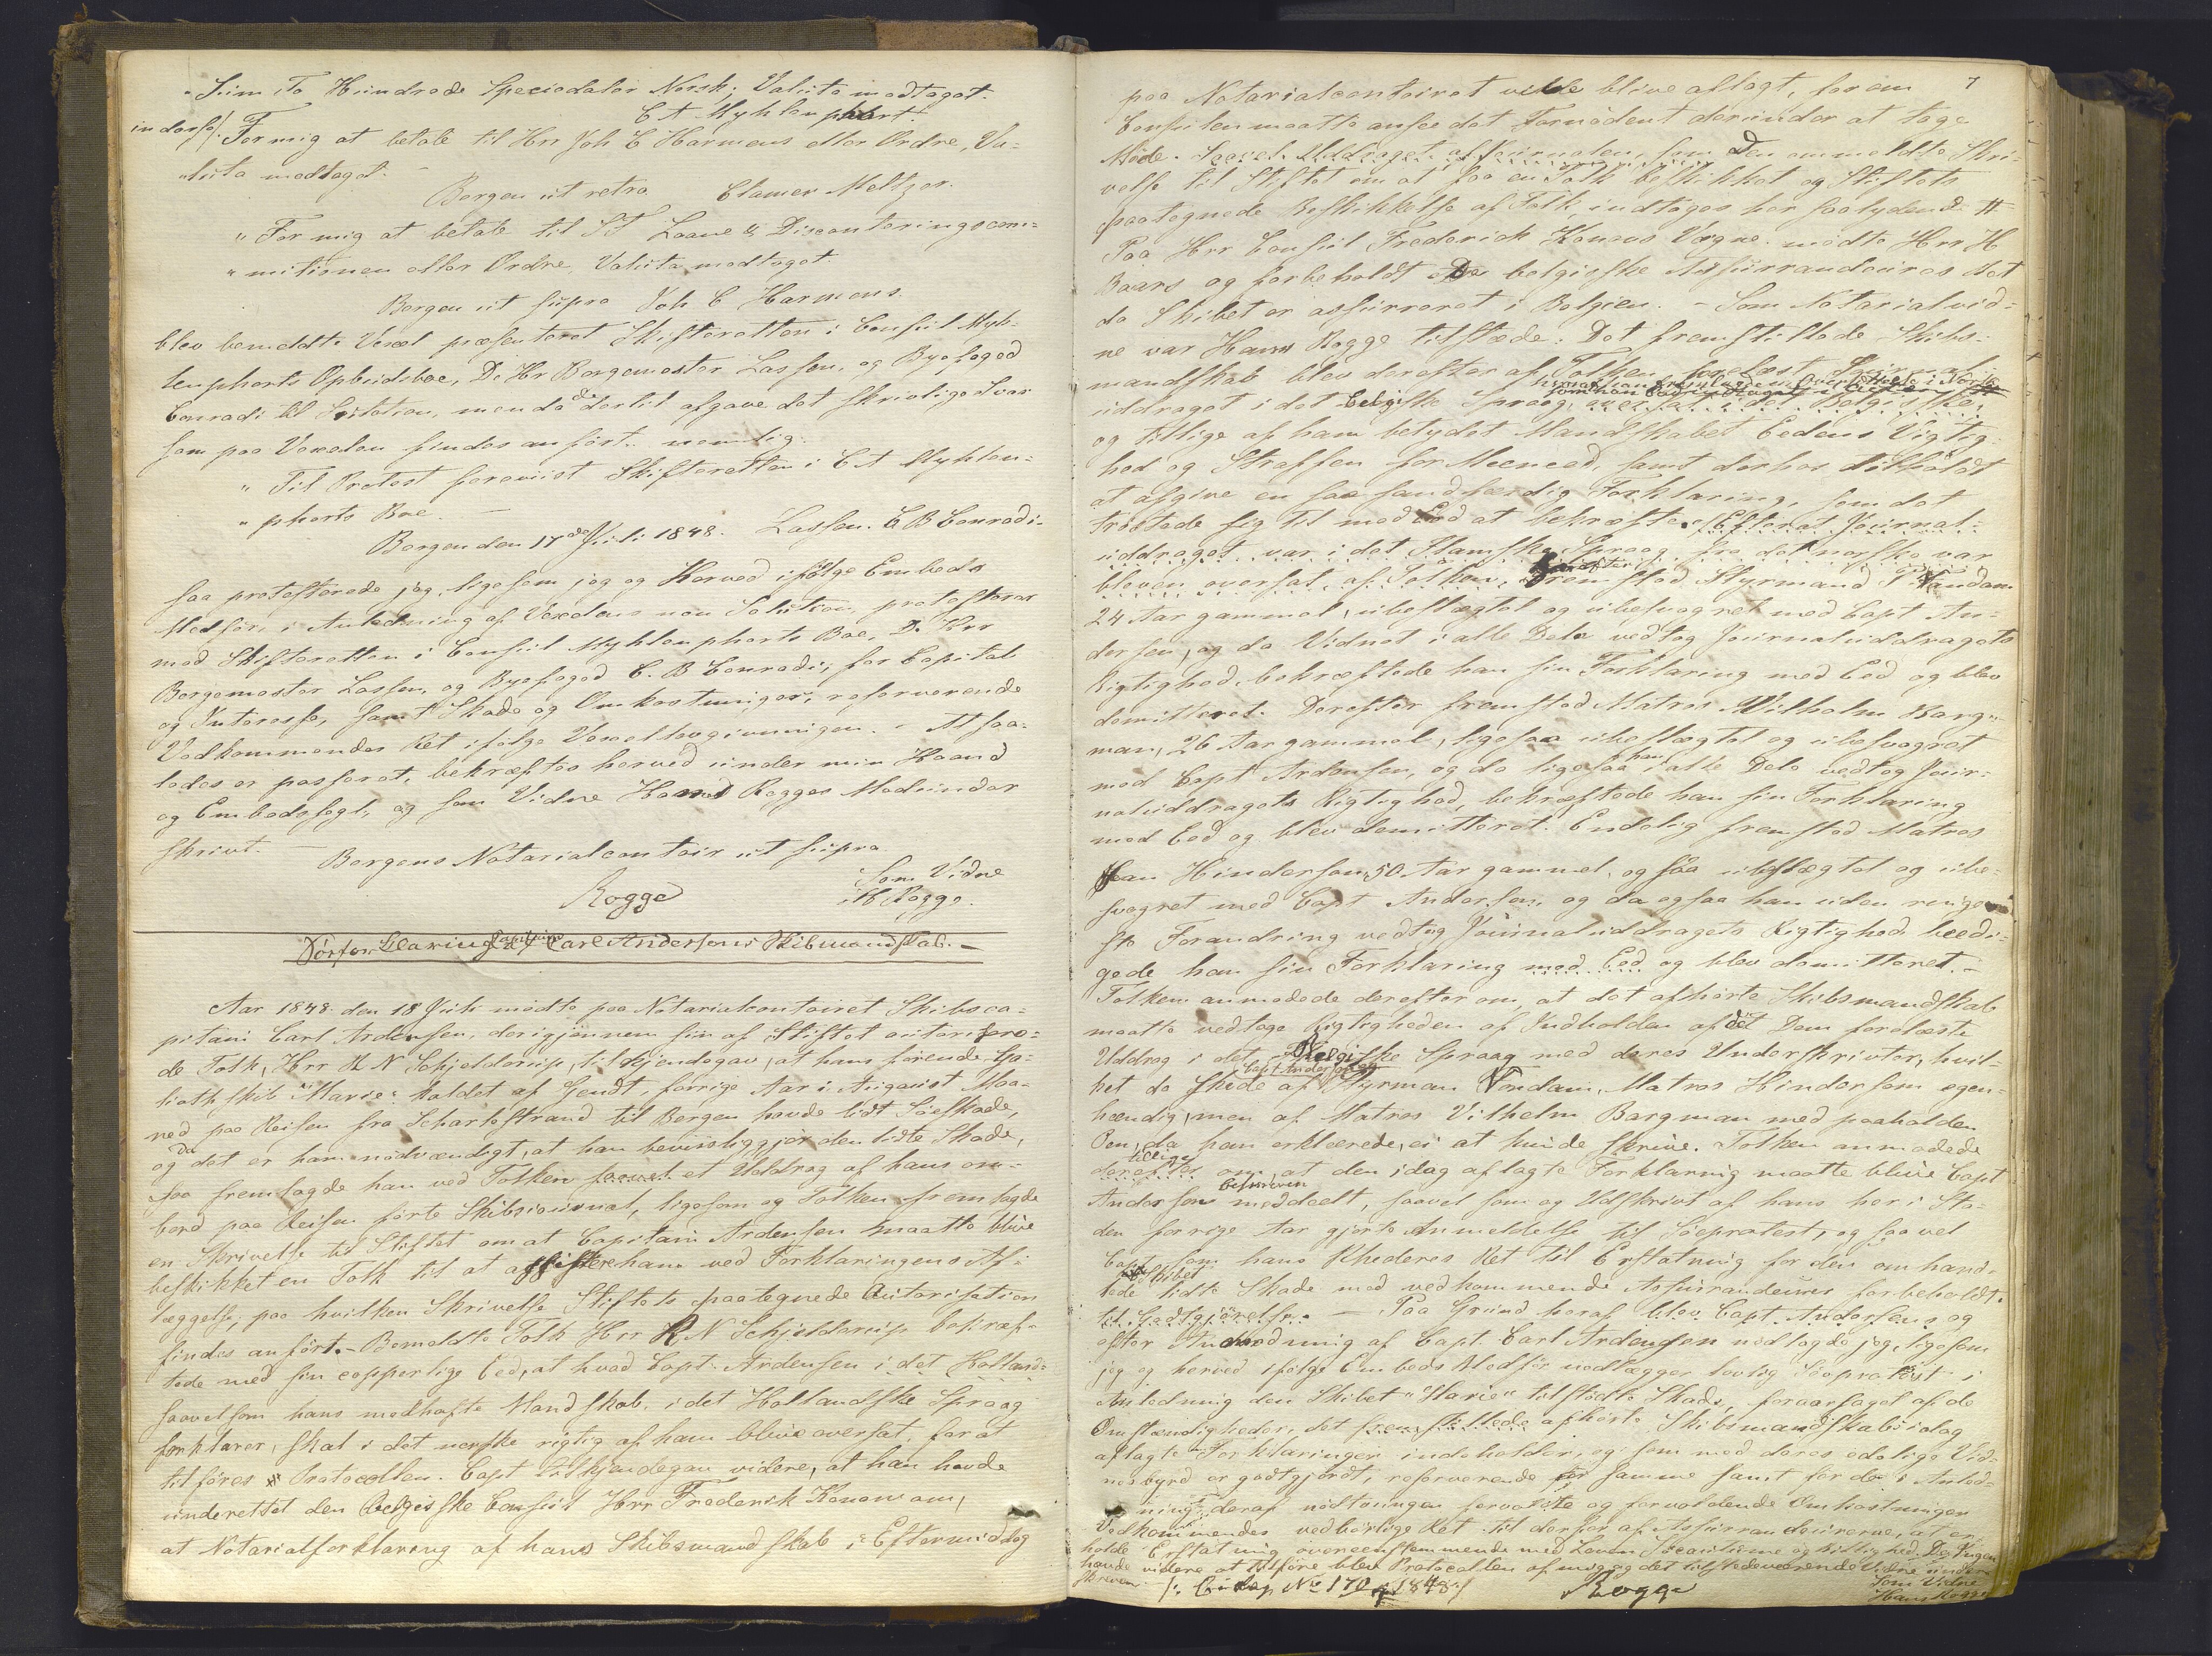 „Sum To Hundrede Speciedaler Norsk; Valuta modtaget.
C A Myhlenphort
in dorso/: For mig at betale til Hrr Joh C Harmens eller Ordre, Va-
„luta modtaget. –
Bergen ut retro Clamer Meltzer.
„ For mig at betale til ST Laane & Disconteringscom-
„ mitionen eller Ordre, Valuta modtaget.
Bergen ut supra Joh C Harmens.
blev bemeldte Vexel præsenteret Skifteretten i Consul Myh-
lenphorts Opbudsboe, D: Hr Borgemester Lassen, og Byefoged
Conradi til Solution, men da de dertil afgave det skriftlige Svar
som paa Vexelen findes anført nemlig:
„ Til Protest foreviist Skifteretten i C A Myhlen-
„ phorts Boe. –
Bergen den 17de Juli 1848. Lassen. C B Conradi.
saa protesterede jeg, ligesom jeg og Herved ifølge Embeds
Medfør, i Anledning af Vexelens non Solution, protesterer
mod Skifteretten i Consul Myhlenphorts Boe, D: Hrr
Borgemester Lassen, og Byefoged C. B Conradi, for Capital
og Interesse, samt Skade og Omkostninger, reserverende
Vedkommendes Ret ifølge Vexellovgivningen. – At saa-
ledes er passeret, bekræftes herved under min Haand
og Embedssegl, og som Vidne Hans Rogges Medunder
skrivt. –
Bergens Notarialcontoir ut supra
Rogge
Som Vidne
H Rogge.
Søeforklaring af Capitain Carl Andersens Skibmandskab. –
Aar 1848 den 18 Juli mødte paa Notarialcontoiret Skibsca-
pitain Carl Ardensen, der igjennem sin af Stiftet autorisere-
de Tolk, Hrr R N Schjelderup, tilkjendegav, at hans førende Ga-
liothskib "Marie" kaldet af Gendt, forrige Aar i August Maa-
ned paa Reisen fra Scharlostrand til Bergen havde lidt Søeskade,
og da det er ham nødvændigt, at han bevisliggjør den lidte Skade,
saa fremlagde han ved Tolken saavel et Uddrag af hans om-
bord paa Reisen førte Skibsjournal, ligesom og Tolken fremlagde
en Skrivelse til Stiftet om at Capitain Ardensen maatte blive
beskikket en Tolk til at assistere ham ved Forklaringens Af-
læggelse, paa hvilken Skrivelse Stiftets paategnede Autorisation
findes anført. – Bemeldte Tolk Hrr R N Schjelderup bekræf-
tede med sin corporlige Eed, at hvad Capt. Ardensen i det Holland-
saavelsom hans medhafte Mandskab, i det Hollandske Spraag
forklarer, skal i det norske rigtig af ham blive oversat, for at
tilføres Protocollen. Capt tilkjendegav videre, at han havde
underrettet den Belgiske Consul Hrr Frederik Konow om,
at Notarialforklaring af hans Skibsmandskab i Eftermiddag
7
paa Notarialcontoiret vilde blive aflagt, forom
Consulen maatte ansee det Fornødent derunder at tage
Møde. Saavel Uddraget af Journalen, som Den ommeldte Skri-
velse til Stiftet om at faa en Tolk beskikket og Stiftets
paategnede Beskikkelse af Tolk, indtages her saalydende #
Paa Hrr Consul Frederich Konows Vegne mødte Hrr H
Baars og forbeholdt De belgieske Assurrandeurers Ret
da Skibet er assurreret i Belgien. – Som Notarialvid-
ne var Hans Rogge tilstæde. Det fremstillede Skibs-
mandskab blev derefter af Tolken forelæst Journal
uddraget i det Belgiske Spraag, oversat i det Belgiske,
og tillige af ham betydet Mandskabet Eedens Vigtig-
hed og Straffen for Meeneed, samt derhos tilholdt
at afgive en saa sandfærdig Forklaring, som det
trøstede sig til med Eed at bekræfte. Efterat Journal-
uddraget var i det Flamske Spraag fra det norske var
bleven oversat af Tolken, fremstod Styrmand P Vandam
24 Aar gammel, ubeslægtet og ubesvogret med Capt An-
dersen, og da Vidnet i alle Dele vedtog Journaluddragets
Rigtighed, bekræftede han sin Forklaring med Eed og blev
demitteret. Derefter fremstod Matros Vilhelm Barg-
man, 26 Aar gammel, ligesaa ubeslægtet og ubesvogret
med Capt Ardensen, og da ligesaa han i alle Dele vedtog Jour-
naluddragets Rigtighed, bekræftede han sin Forklaring
med Eed og blev demitteret. Endelig fremstod Matros
Jean Hinderson, 50 Aar gammel, og saa ubeslægtet og ube-
svogret med Capt Andersen, og da ogsaa han uden ringe-
ste Forandring vedtog Journaluddragets Rigtighed beedi-
gede han sin Forklaring med Eed og blev demitteret. –
Tolken anmodede derefter om, at det afhørte Skibsmandskab
maatte vedtage Rigtigheden af Indholdet af det Dem forelæste
Uddrag i det Belgiske Spraag med deres Underskrivter, hvil-
ket da skede af Capt Andersen Styrman Vandam, Matros Hinderson egen-
hændig, men af Matros Vilhelm Bargman med paaholden
Pen, da han erklærede, ei at kunde skrive. Tolken anmodede
derefter tillige om, at den idag aflagte Forklaring maatte blive Capt
Andersen beskreven meddeelt, saavel som og Udskrivt af hans her i Sta-
den forrige Aar gjorte Anmeldelse til Søeprotest, og saavel
Capt som hans Rhederes Ret til Erstatning for den omhand-
lede Skibet lidte Skade mod vedkommende Assurrandeurer forbeholdt
til Godtgjørelse. – Paa Grund heraf blev Capt. Andersens og
efter Anmodning af Capt Carl Ardensen nedlagde jeg, ligesom
jeg og herved ifølge Embeds Medfør nedlægger lovlig Søeprotest i
Anledning den Skibet "Marie" tilstødte Skade, foraarsaget af de
Omstændigheder, det fremstillede afhørte Skibsmandskabs idag
aflagte Forklaringer indeholder, og som med deres edelige Vid-
nesbyrd er godtgjordt, reserverende for samme samt for de i Anled-
ning deraf nødtvungen forvoldte og forvoldende Omkostninger
Vedkommendes vedbørlige Ret til derfor af Assurrandeurerne, at er-
holde Erstatning overeensstemmende med Loven Søecoutume og Billighed. Da Ingen
havde videre at tilføre blev Protocollen af mig og det tilstedeværende Vidne under-
skreven. /: Bilag No 170 1848:/ Rogge
Som Vidne
Hans Rogge